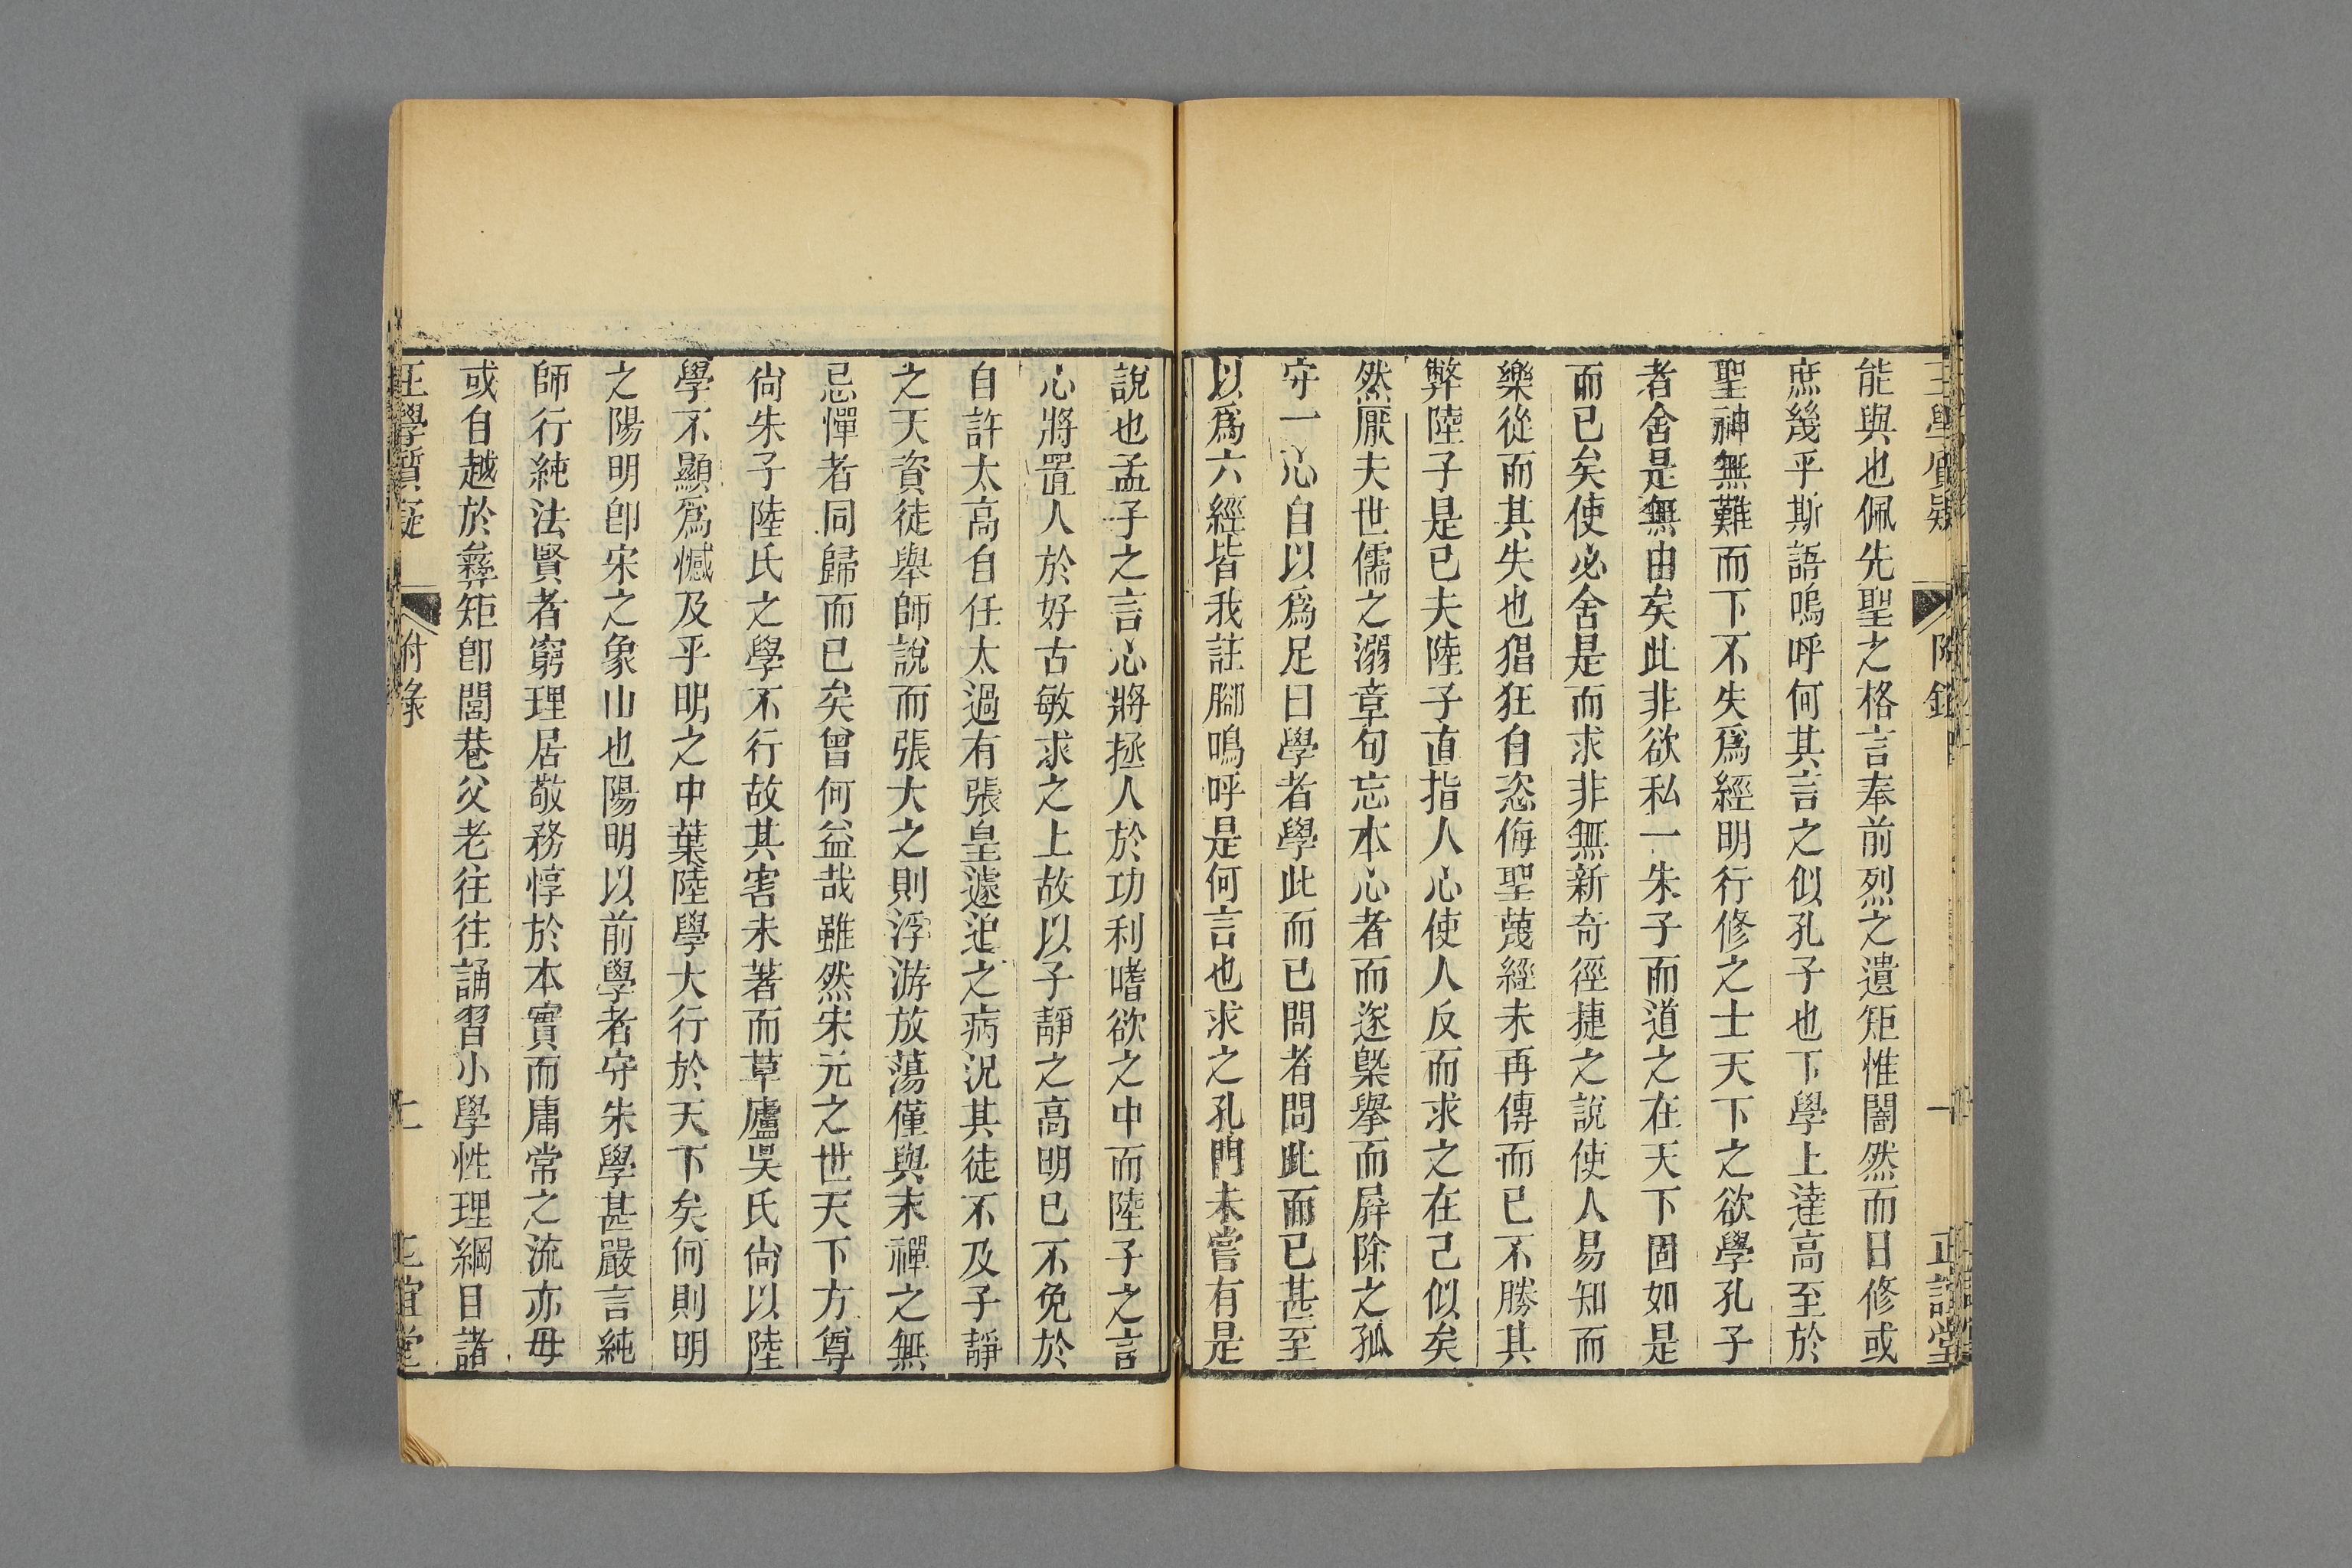 王學質疑 附錄 正誼堂
能與也佩先聖之格言奉前烈之遺矩惟闇然而日修或
庶幾乎斯語嗚呼何其言之似孔子也下學上達高至於
聖神無難而下不失爲經明行修之士天下之欲學孔子
者舍是無由矣此非欲私一朱子而道之在天下固如是
而已矣使必舍是而求非無新奇徑捷之說使人易知而
樂從而其失也猖狂自恣侮聖蔑經未再傳而已不勝其
弊陸子是已夫陸子直指人心使人反而求之在己似矣
然厭夫世儒之溺章句忘本心者而遂槩舉而屛除之孤
守一心自以爲足曰學者學此而已問者問此而已甚至
以爲六經皆我註腳嗚呼是何言也求之孔門未嘗有是
說也孟子之言心將拯人於功利嗜欲之中而陸子之言
心將置人於好古敏求之上故以子靜之高明已不免於
自許太高自任太過有張皇遽迫之病況其徒不及子靜
之天資徒舉師說而張大之則浮游放蕩僅與末禪之無
忌憚者同歸而已矣曾何益哉雖然宋元之世天下方尊
尙朱子陸氏之學不行故其害未著而草廬吳氏尙以陸
學不顯爲憾及乎明之中葉陸學大行於天下矣何則明
之陽明卽宋之象山也陽明以前學者守朱學甚嚴言純
師行純法賢者窮理居敬務惇於本實而庸常之流亦毋
或自越於彝矩卽閭巷父老往往誦習小學性理綱目諸
王學質疑 附錄 正誼堂